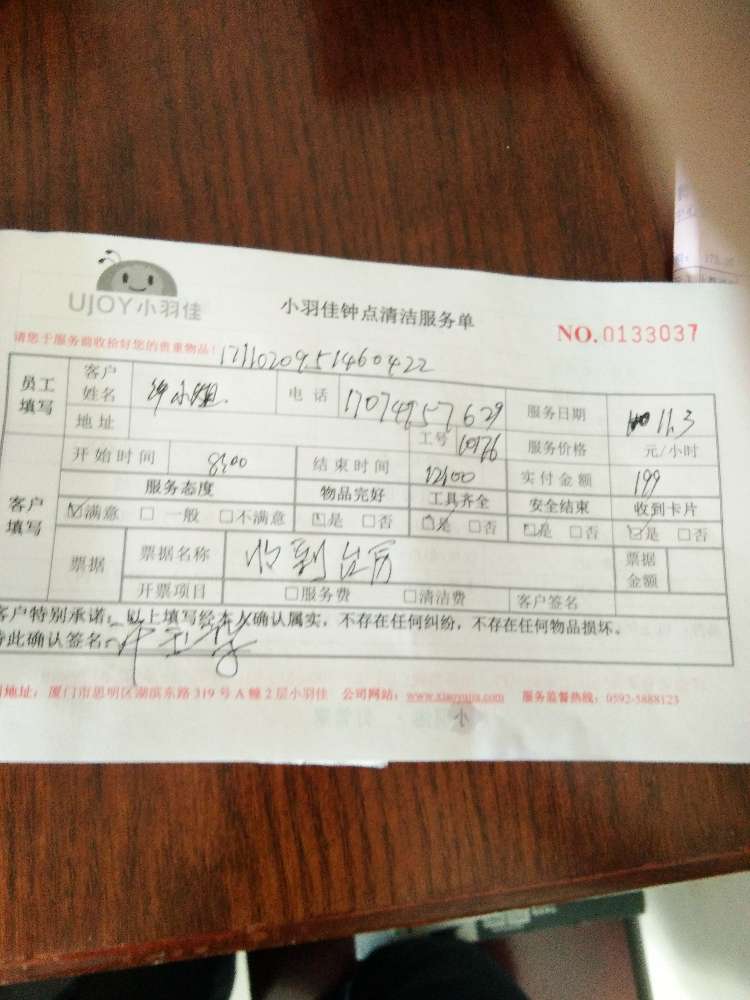 UJOY小羽佳
小羽佳钟点清洁服务单
NO.0133037
请您于服务前收拾好您的贵重物品!
1711020951460422
员工填写 客户姓名 小姐 电话 17074957629 服务日期 11.3
地址 工号 10176 服务价格 元/小时
客户填写 开始时间 8:00 结束时间 12:00 实付金额 199
服务态度 物品完好 工具齐全 安全结束 收到卡片
☑满意 □一般 □不满意 ☑是 □否 ☑是 □否 ☑是 □否 ☑是 □否
票据 票据名称 收到台历 票据金额
开票项目 □服务费 □清洁费 客户签名
客户特别承诺:以上填写经本人确认属实,不存在任何纠纷,不存在任何物品损坏。
此确认签名:
地址:厦门市思明区湖滨东路319号A幢2层小羽佳 公司网站:www.xiaoyujia.com 服务监督热线:0592-5888123